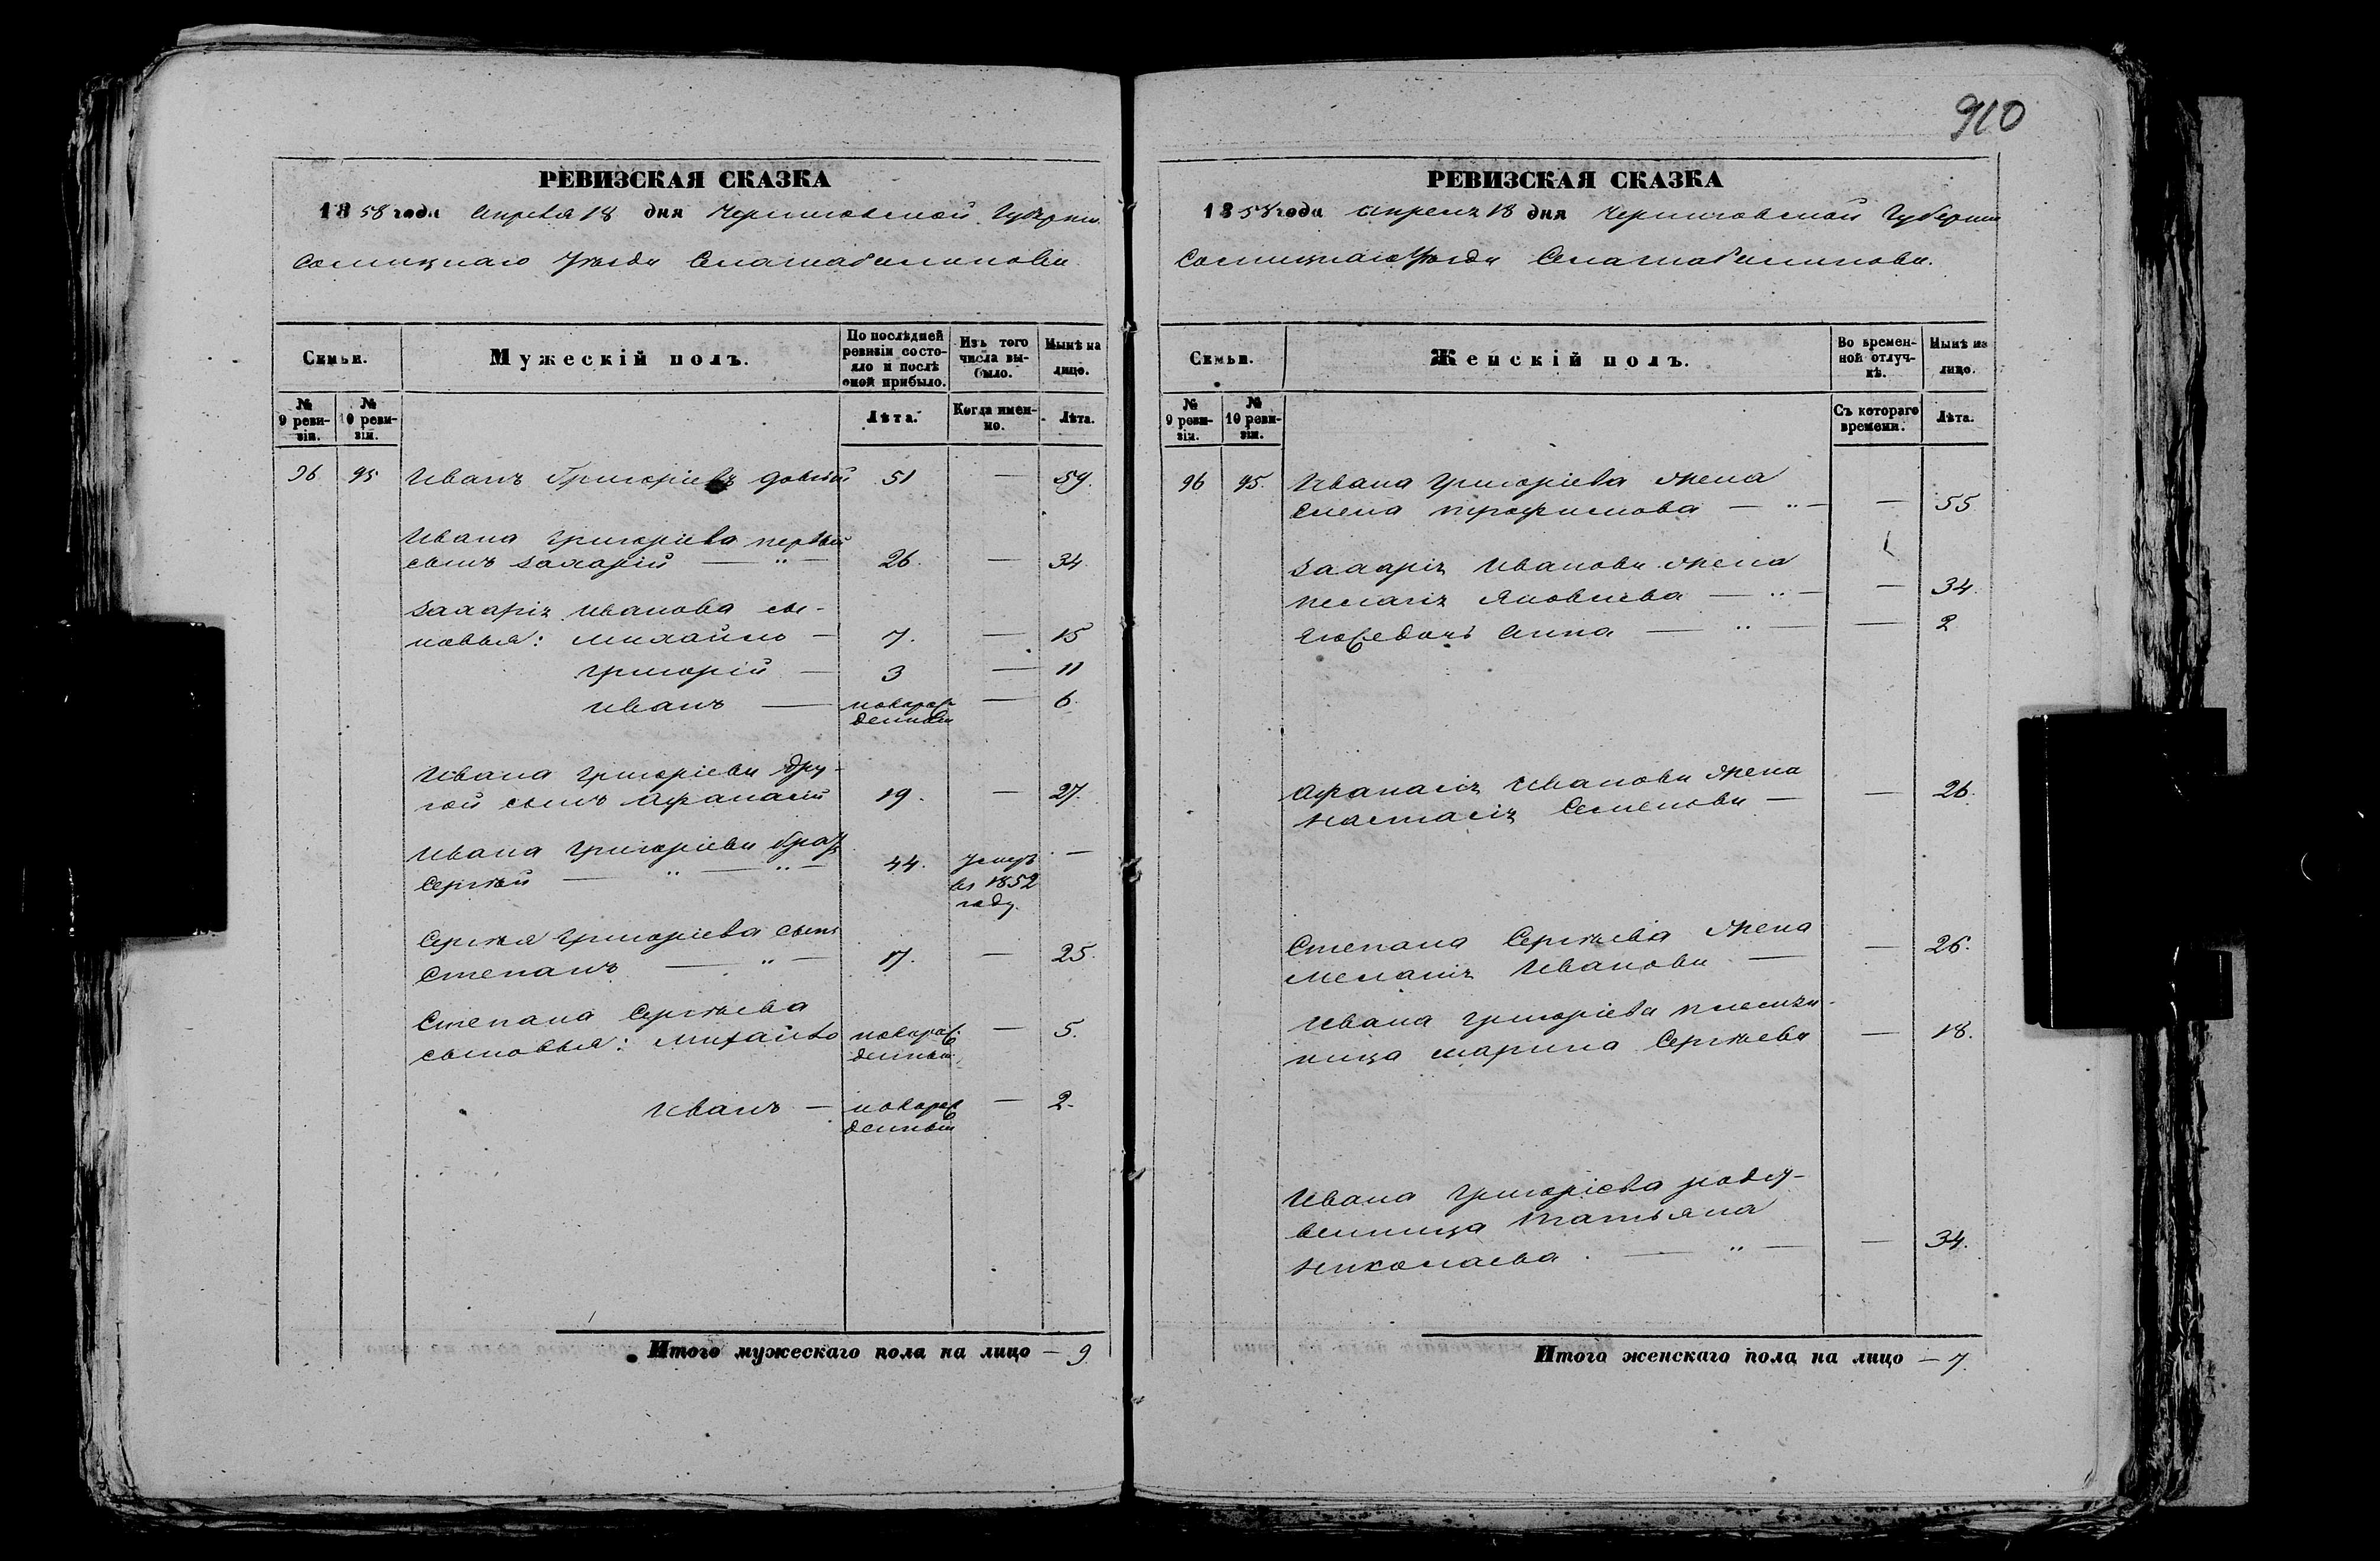 910
РЕВИЗСКАЯ СКАЗКА
1858 года Апреля 18 дня Черниговской Губерніи
Сосницкаго Уѣзда
Семьи.
Мужескій полъ.
По послѣдней ревизіи состояло и послѣ оной прибыло.
Изъ того числа выбыло.
Нынѣ на лицо.
№ 9 ревизіи.
№ 10 ревизіи.
Лѣта.
Когда именно.
Лѣта.
96 95 Иванъ Григоріевъ 51 — 59.
Ивана Григоріева первый
сынъ Захарій — " — 26. — 34.
Захарія Иванова сы-
новья: Михайло — 7. — 15
Григорій — 3 — 11
Иванъ — новорож
денный — 6.
Ивана Григоріева дру-
гой сынъ Афанасій 19. — 27.
Ивана Григоріева братъ
Сергѣй — " — " — 44. Умеръ
въ 1852
году. —
Сергѣя Григоріева сынъ
Степанъ — " — 17. — 25.
Степана Сергѣева
сыновья: Михайло новорож
денный — 5.
Иванъ — новорож
денный — 2.
Итого мужескаго пола на лицо — 9
РЕВИЗСКАЯ СКАЗКА
1858 года апреля 18 дня Черниговской Губерніи
Сосницкаго Уѣзда
Семьи.
Женскій полъ.
Во временной отлучкѣ.
Нынѣ на лицо.
№ 9 ревизіи.
№ 10 ревизіи.
Съ котораго времени.
Лѣта.
96 95. Ивана Григоріева жена
Елена Трофимова — " — — 55
Захарія Иванова жена
Пелагія Яковлева — " — — 34.
Анна — " — — 2
Афанасія Иванова жена
Настасія Семенова — — 26.
Степана Сергѣева жена
Меланія Иванова — — 26.
Ивана Григоріева племян-
ница Марина Сергѣева — 18.
Ивана Григоріева родст-
венница Татьяна
Николаева — " — — 34.
Итого женскаго пола на лицо — 7.